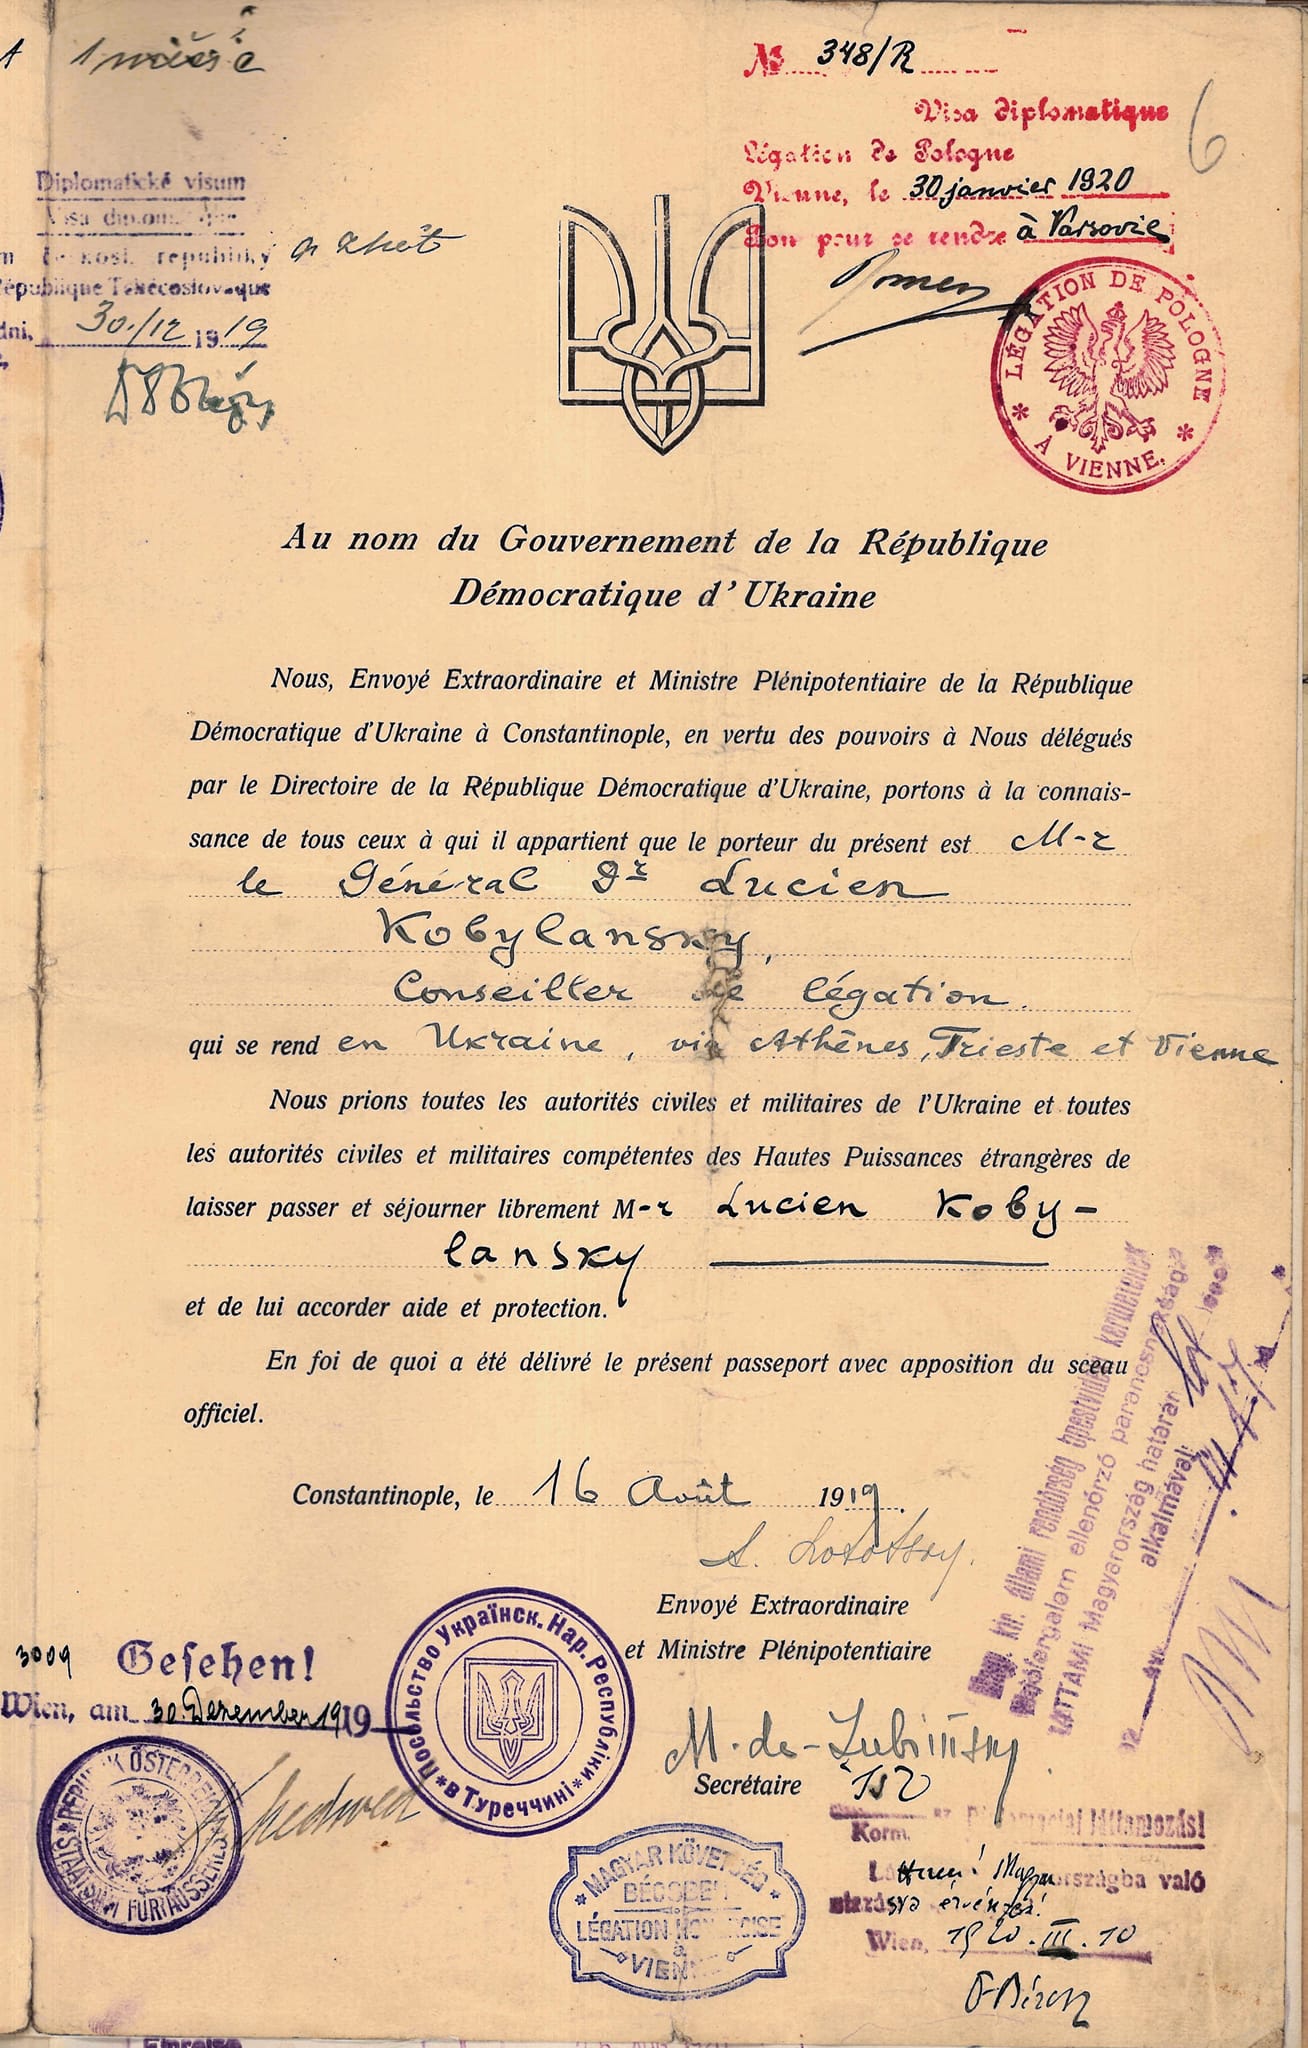 1 měsíc
Diplomatické visum
Visa diplomatique
républiky
République Tchécoslovaque
30./12 1919
№ 348/R
Visa diplomatique
Légation de Pologne
Vienne, le 30 janvier 1920
Bon pour se rendre à Varsovie
6
LÉGATION DE POLOGNE
* À VIENNE. *
Au nom du Gouvernement de la République
Démocratique d'Ukraine
Nous, Envoyé Extraordinaire et Ministre Plénipotentiaire de la République
Démocratique d'Ukraine à Constantinople, en vertu des pouvoirs à Nous délégués
par le Directoire de la République Démocratique d'Ukraine, portons à la connais-
sance de tous ceux à qui il appartient que le porteur du présent est M-r
le Général Dr Lucien
Kobylansky,
Conseiller de légation.
qui se rend en Ukraine, via Athènes, Trieste et Vienne
Nous prions toutes les autorités civiles et militaires de l'Ukraine et toutes
les autorités civiles et militaires compétentes des Hautes Puissances étrangères de
laisser passer et séjourner librement M-r Lucien Koby-
lansky
et de lui accorder aide et protection.
En foi de quoi a été délivré le présent passeport avec apposition du sceau
officiel.
Constantinople, le 16 Août 1919.
A. Lototsky.
Envoyé Extraordinaire
et Ministre Plénipotentiaire
M. de-Lubinsky
Secrétaire
152
Посольство Українск. Нар. Республіки
* в Туреччині *
3009
Gesehen!
Wien, am 30. Dezember 1919
REPUBLIK ÖSTERREICH
STAATSAMT FÜR ÄUSSERES
kir. állami rendőrség bpestvidéki kerületének
ellenőrző parancsnoksága
LÁTTAMI Magyarország határán
alkalmával:
MAGYAR KÖVETSÉG
BÉCSBEN
LÉGATION HONGROISE
à
VIENNE
Korm. sz. Diplomáciai láttamozás!
Láttam! Magyarországba való
utazásra érvényes!
Wien, 1920. III. 10